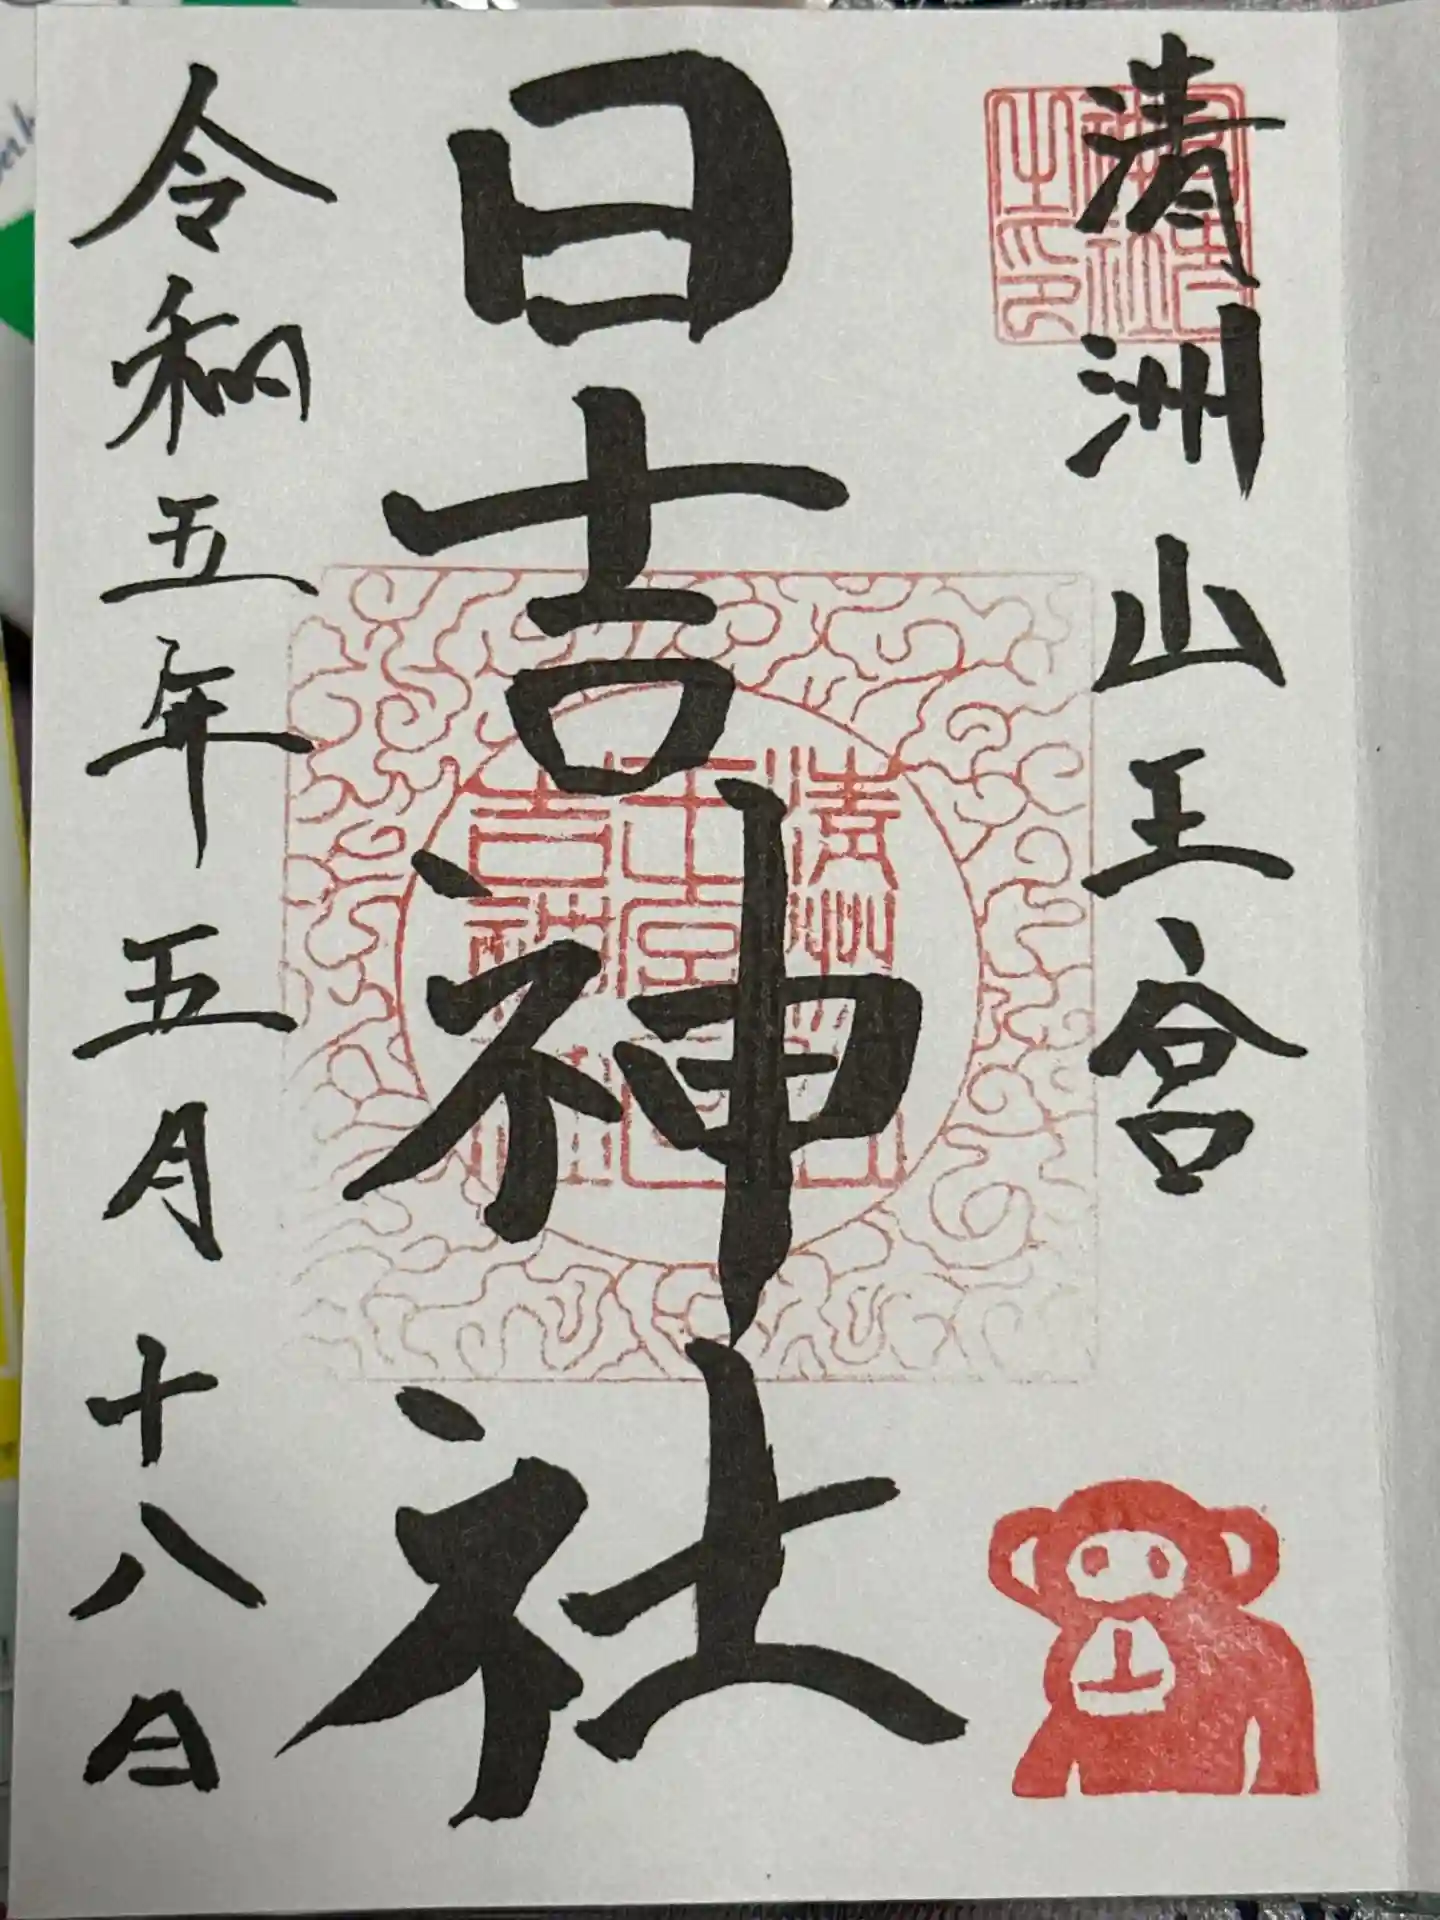 清洲山王宮
日吉神社
令和五年五月十八日
清洲山王宮日吉神社